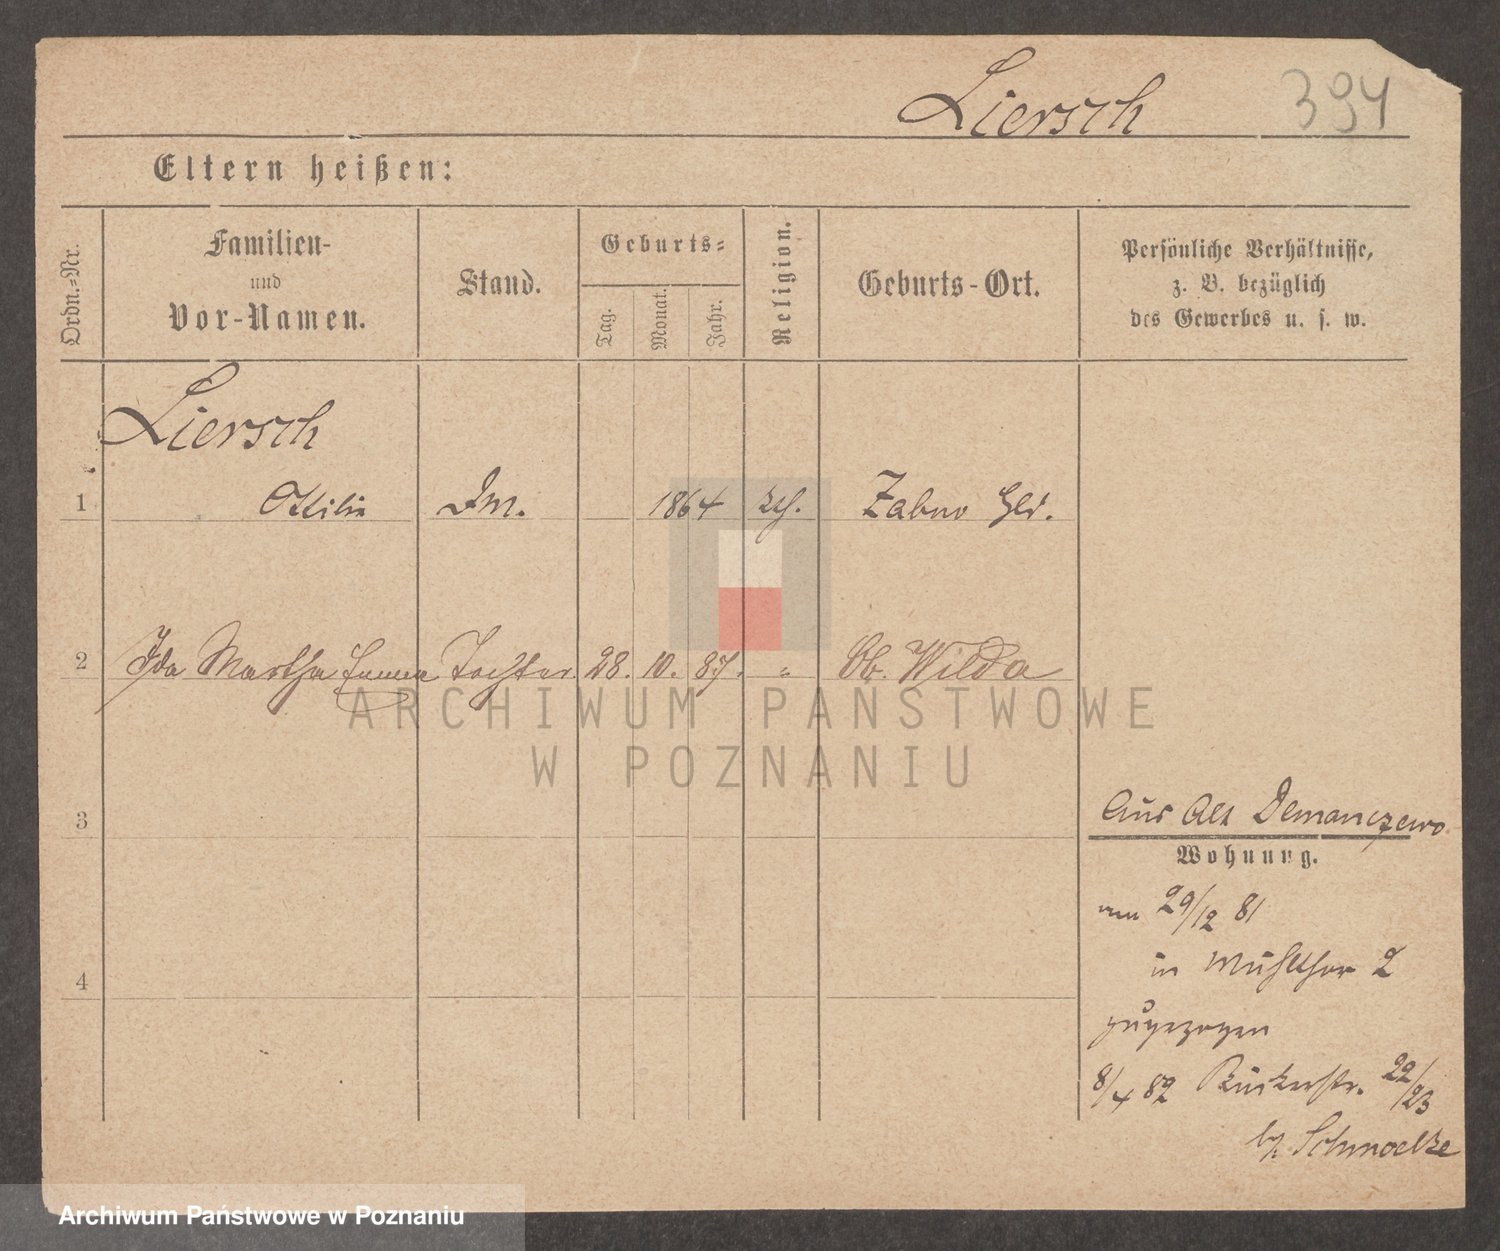 Liersch 394
Eltern heißen:
Ordn.-Nr.
Familien-
und
Vor-Namen.
Stand.
Geburts-
Tag.
Monat.
Jahr.
Religion.
Geburts-Ort.
Persönliche Verhältnisse,
z. B. bezüglich
des Gewerbes u. s. w.
Liersch
1 Ottilie Dm. 1864 Zabno
2 Ida Martha Emma Tochter 28. 10. 87. " Ob. Wilda
ARCHIWUM PAŃSTWOWE
W POZNANIU
3
Aus Alt Demanczewo
Wohnung.
am 29/12 81
4
in Mühlthor 2
zugezogen
8/4 82 Bäckerstr. 22/23
b/. Schmoelke
Archiwum Państwowe w Poznaniu